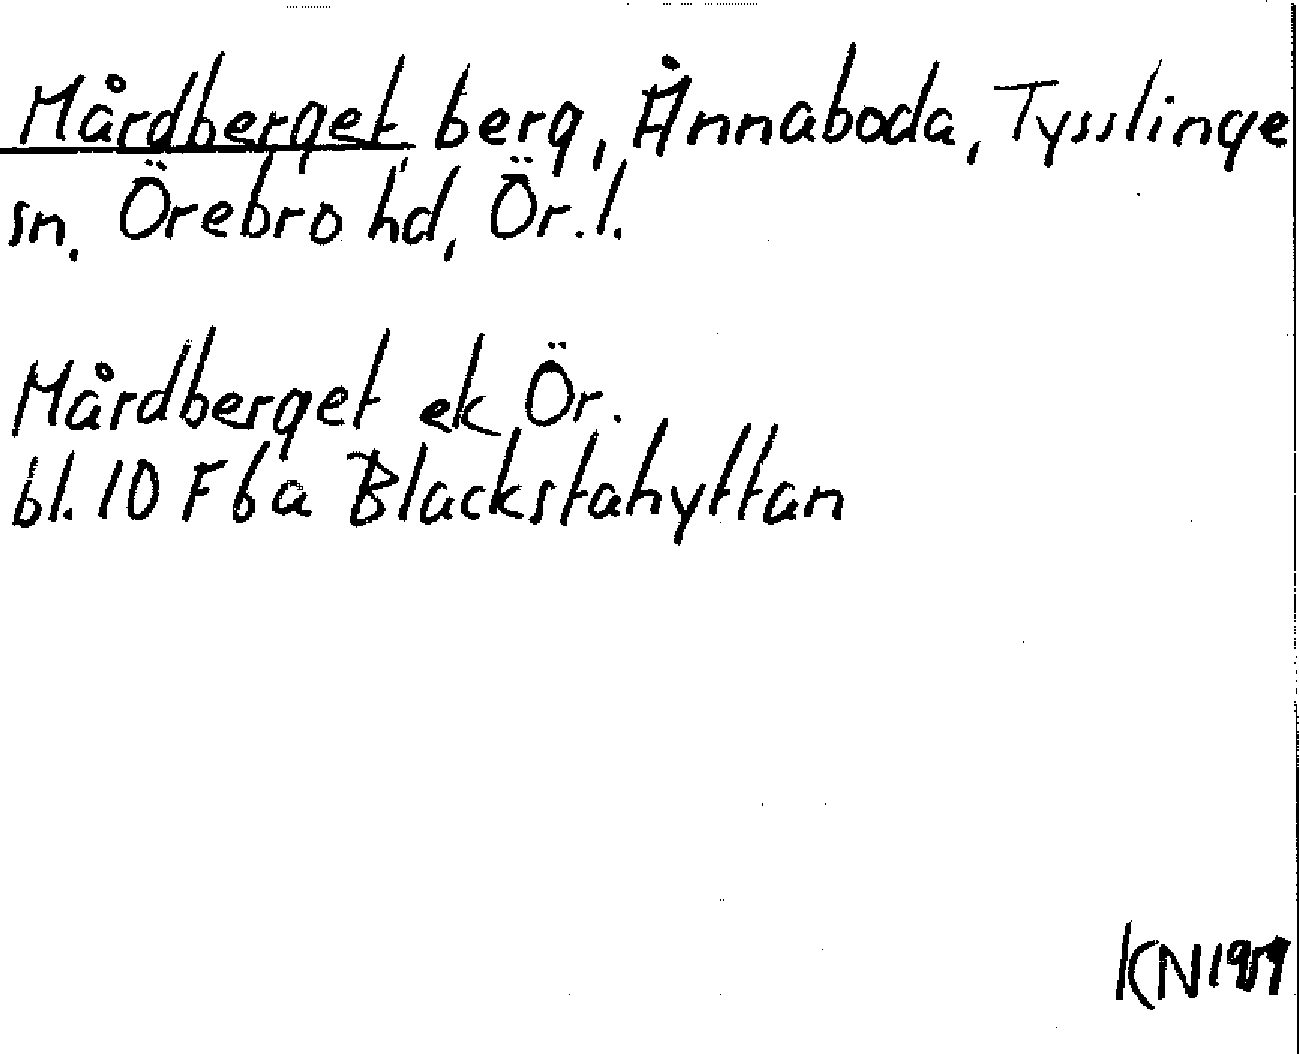 Mårdberget, berg, Ånnaboda, Tysslinge
sn. Örebro hd, Ör. l.
Mårdberget ek Ör.
bl. 10 F 6 a Blackstahyttan